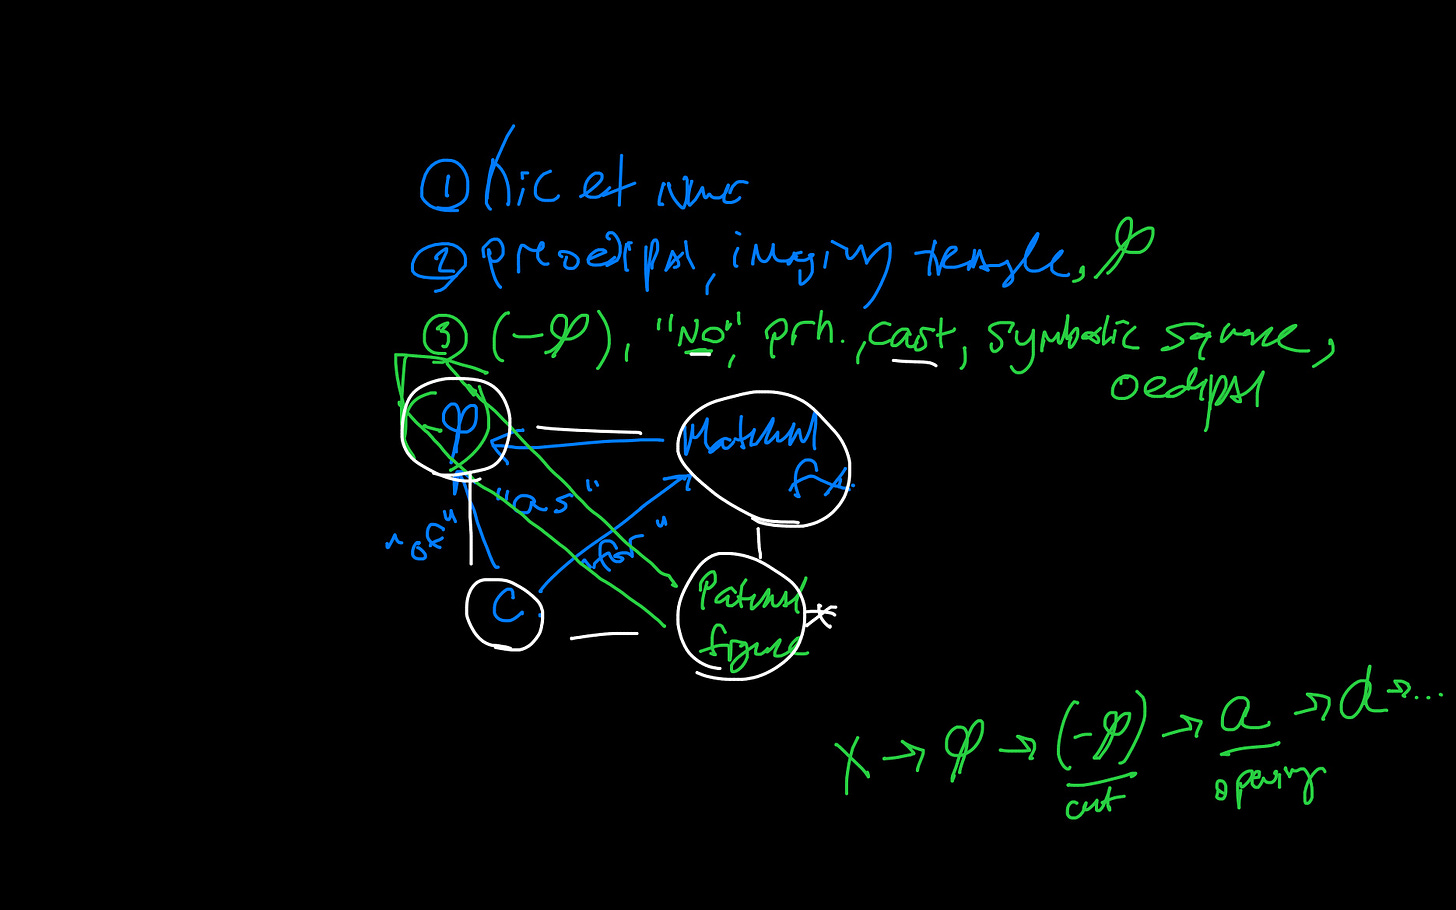 ① hic et nunc
② preoedipal, imaginary triangle, φ
③ (-φ), "NO", prh., cast, symbolic square,
oedipal
φ Maternal
f×.
"as"
"of" "for"
C Paternal *
figure
x → φ → (-φ) → a → d → ...
cut opening